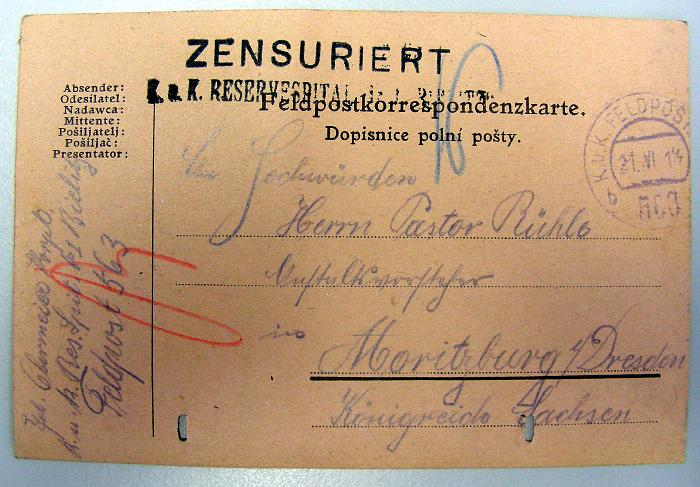 ZENSURIERT
K. u K. RESERVESPITAL
Feldpostkorrespondenzkarte.
Dopisnice polní pošty.
Absender:
Odesílatel:
Nadawca:
Mittente:
Pošiljatelj:
Pošiljač:
Presentator:
K.u.K. FELDPOST
21. VI 14
b
Hochwürden
Herrn Pastor Rühle
Anstaltsvorsteher
in
Moritzburg /Dresden
Königreich Sachsen
k. u. k. Res. Spit. Bielitz
Feldpost 563